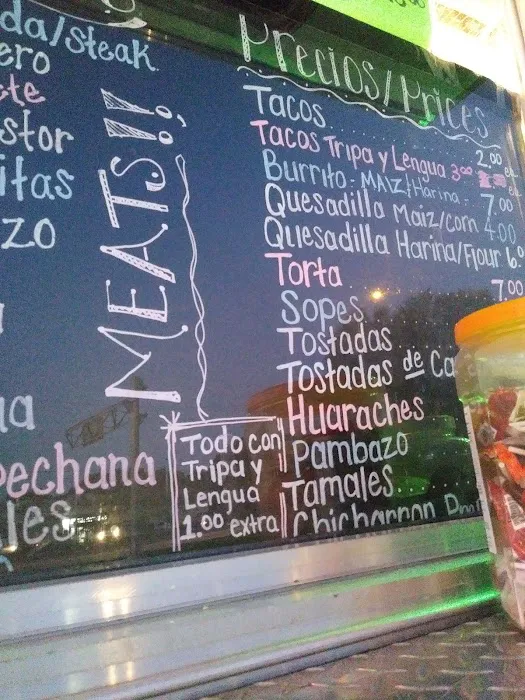 da/Steak
ero
ete
stor
itas
zo
a
pechana
les
MEATS!!
Todo con
Tripa y
Lengua
1.00 extra
Precios/Prices
Tacos 2.00 ea
Tacos Tripa y Lengua 3.00
Burrito - Maiz/Harina - 7.00
Quesadilla Maiz/corn 4.00
Quesadilla Harina/Flour 6.0
Torta 7.00
Sopes
Tostadas
Tostadas de Ca
Huaraches
Pambazo
Tamales
Chicharron